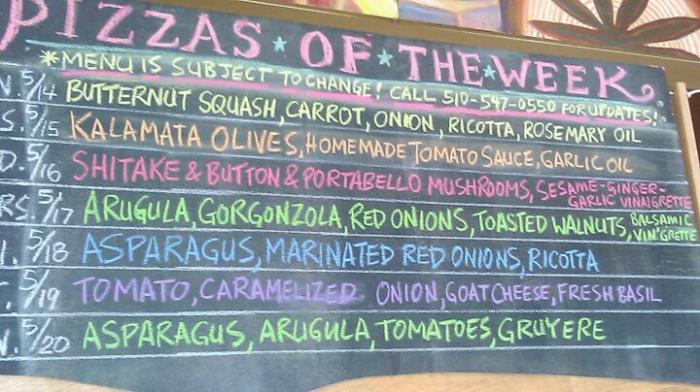 PIZZAS ★ OF ★ THE ★ WEEK
*MENU IS SUBJECT TO CHANGE! CALL 510-547-0550 FOR UPDATES!
N. 5/14 BUTTERNUT SQUASH, CARROT, ONION, RICOTTA, ROSEMARY OIL
S. 5/15 KALAMATA OLIVES, HOMEMADE TOMATO SAUCE, GARLIC OIL
D. 5/16 SHITAKE & BUTTON & PORTABELLO MUSHROOMS, SESAME-GINGER-
GARLIC VINAIGRETTE
RS. 5/17 ARUGULA, GORGONZOLA, RED ONIONS, TOASTED WALNUTS, BALSAMIC
VIN'GRETTE
I. 5/18 ASPARAGUS, MARINATED RED ONIONS, RICOTTA
T. 5/19 TOMATO, CARAMELIZED ONION, GOAT CHEESE, FRESH BASIL
N. 5/20 ASPARAGUS, ARUGULA, TOMATOES, GRUYERE